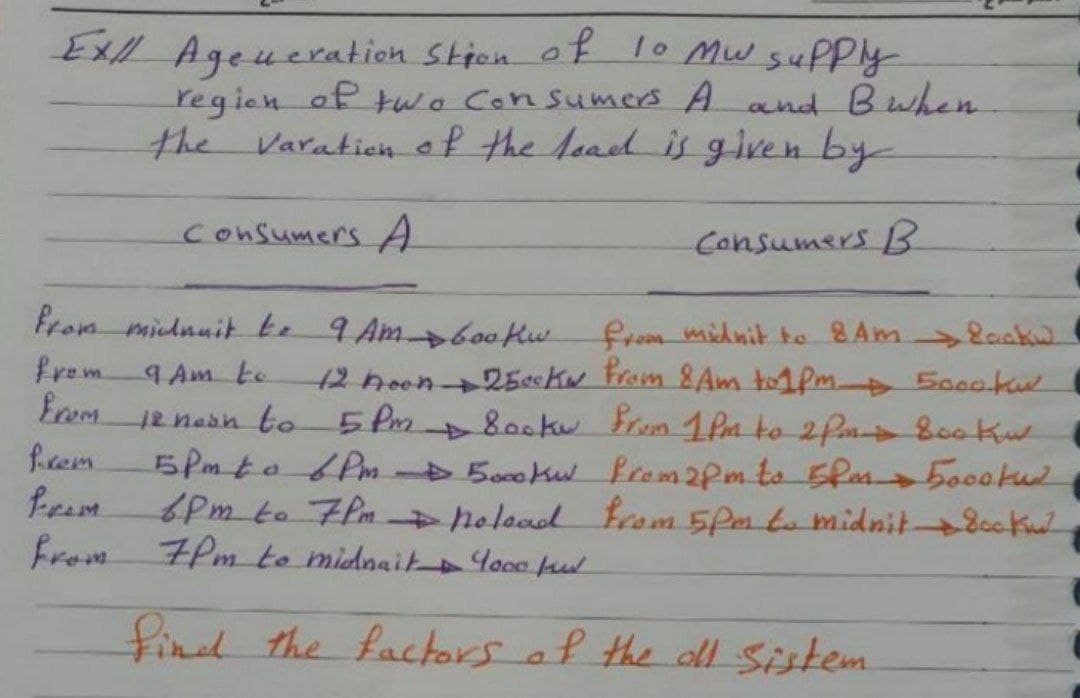 Ex// A geueration Stion of 10 MW supply
region of two Consumers A and B when
the Varation of the load is given by
Consumers A Consumers B
From midnait to 9 Am → 600 Kw from midnit to 8 Am → 800kw
from 9 Am to 12 noon → 2500 Kw from 8 Am to 1 Pm → 5000 kw
From 12 noon to 5 Pm → 800 kw from 1 Pm to 2 Pm → 800 Kw
from 5 Pm to 6 Pm → 5000 kw from 2 Pm to 5 Pm → 5000 kw
From 6 Pm to 7 Pm → noload from 5 Pm to midnit → 800 Kw
from 7 Pm to midnait → 4000 kw
find the factors of the oll Sistem